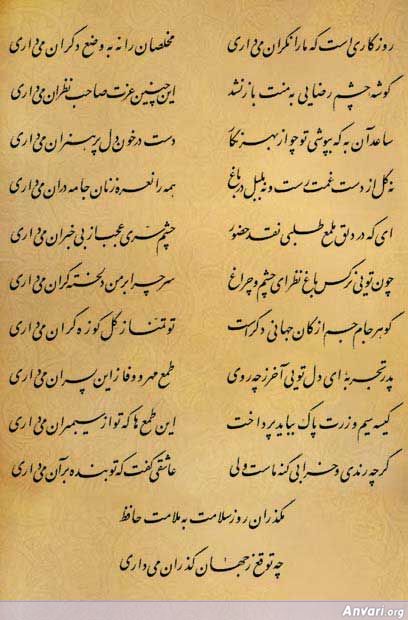 روزگاری است که ما را نگران می‌داری مخلصان را نه به وضع دگران می‌داری
گوشه چشم رضایی به منت باز نشد این چنین عزت صاحب نظران می‌داری
ساعد آن به که بپوشی تو چو از بهر نگار دست در خون دل پرهنران می‌داری
نه گل از دست غمت رست و نه بلبل در باغ همه را نعره زنان جامه دران می‌داری
ای که در دلق ملمع طلبی نقد حضور چشم سری عجب از بی‌خبران می‌داری
چون تویی نرگس باغ نظر ای چشم و چراغ سر چرا بر من دلخسته گران می‌داری
گوهر جام جم از کان جهانی دگر است تو تمنا ز گل کوزه گران می‌داری
پدر تجربه ای دل تویی آخر ز چه روی طمع مهر و وفا زاین پسران می‌داری
کیسه سیم و زرت پاک بباید پرداخت این طمع‌ها که تو از سیمبران می‌داری
گرچه رندی و خرابی گنه ماست ولی عاشقی گفت که تو بنده بر آن می‌داری
مگذران روز سلامت به ملامت حافظ
چه توقع ز جهان گذران می‌داری
Anvari.org